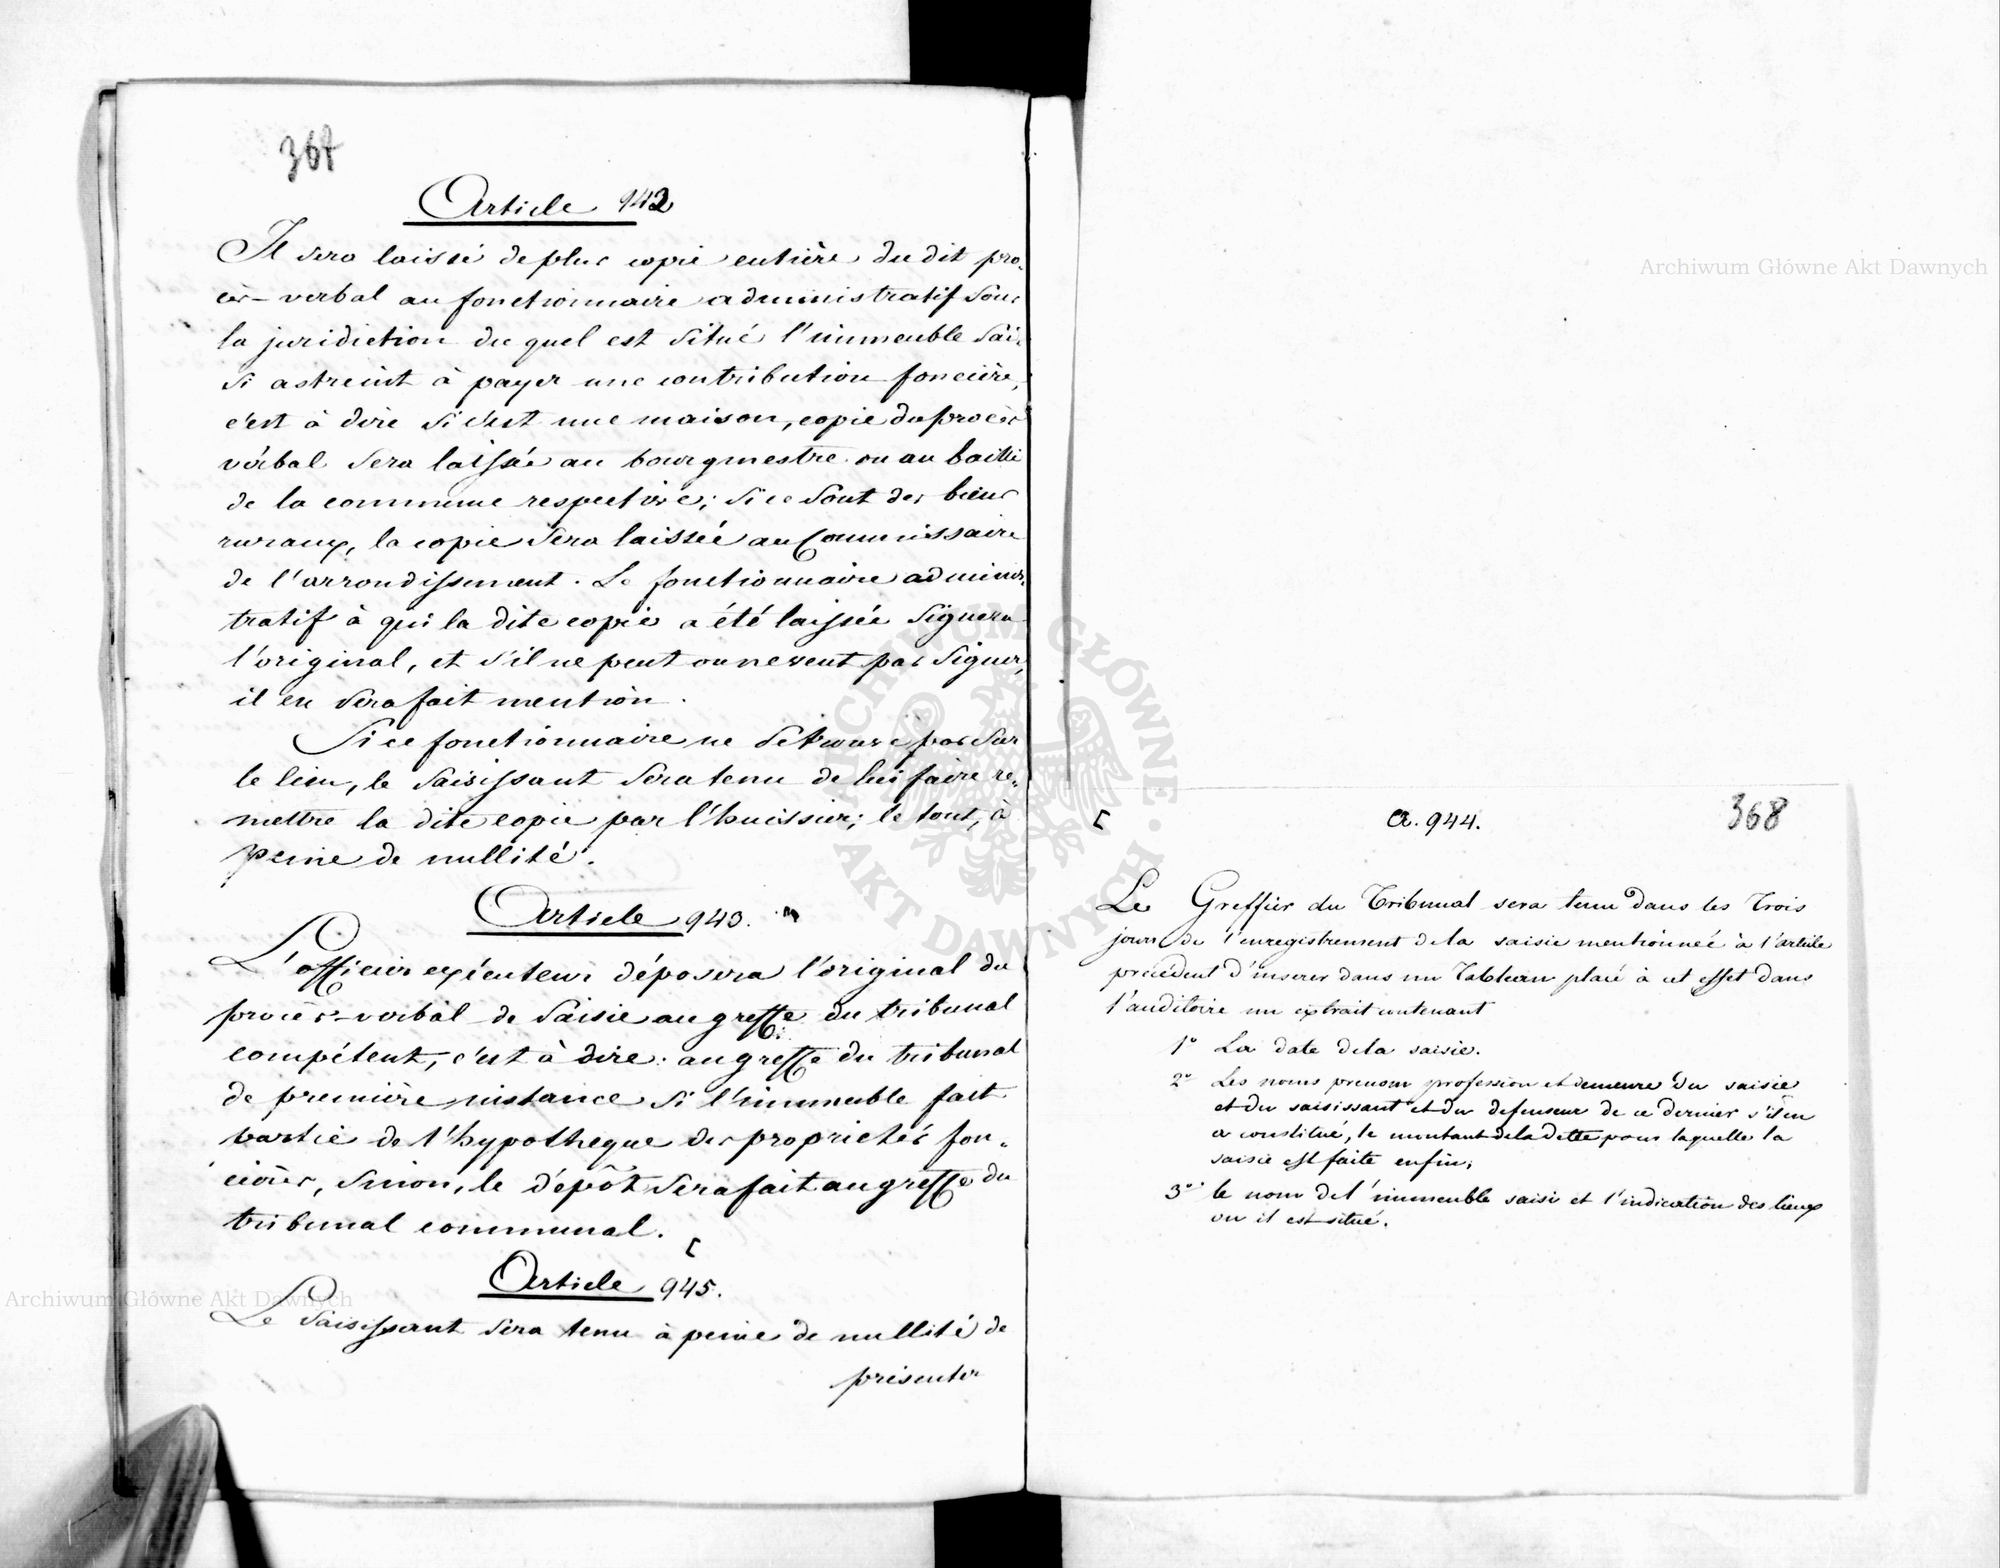 367
Article 942
Il sera laissé de plus copie entière du dit pro-
cès-verbal au fonctionnaire administratif sous
la juridiction du quel est situé l'immeuble sai-
si astreint à payer une contribution foncière,
c'est à dire si c'est une maison, copie du procès
verbal sera laissée au bourgmestre ou au bailli
de la commune respective; si ce sont des biens
ruraux, la copie sera laissée au Commissaire
de l'arrondissement. Le fonctionnaire adminis-
tratif à qui la dite copie a été laissée signera
l'original, et s'il ne peut ou ne veut pas signer,
il en sera fait mention.
Si ce fonctionnaire ne se trouve pas sur
le lieu, le saisissant sera tenu de lui faire re-
mettre la dite copie par l'huissier; le tout, à
peine de nullité.
Article 943.
L'officier exécuteur déposera l'original du
procès-verbal de saisie au greffe du tribunal
compétent, c'est à dire: au greffe du tribunal
de première instance si l'immeuble fait
partie de l'hypotheque des propriétés fon-
cières, sinon, le dépôt sera fait au greffe du
tribunal communal.
[
Article 945.
Le saisissant sera tenu à peine de nullité de
présenter
[ a. 944. 368
Le Greffier du Tribunal sera tenu dans les Trois
jours de l'enregistrement de la saisie mentionnée à l'article
precédent d'inserer dans un Tableau placé à cet effet dans
l'auditoire un extrait contenant
1° La date de la saisie.
2° Les noms prenom profession et demeure du saisie
et du saisissant et du defenseur de ce dernier s'il en
a constitué, le montant de la dette pour laquelle la
saisie est faite enfin;
3° le nom de l'immeuble saisi et l'indication des lieux
ou il est situé.
Archiwum Główne Akt Dawnych
Archiwum Główne Akt Dawnych
ARCHIWUM GŁÓWNE AKT DAWNYCH